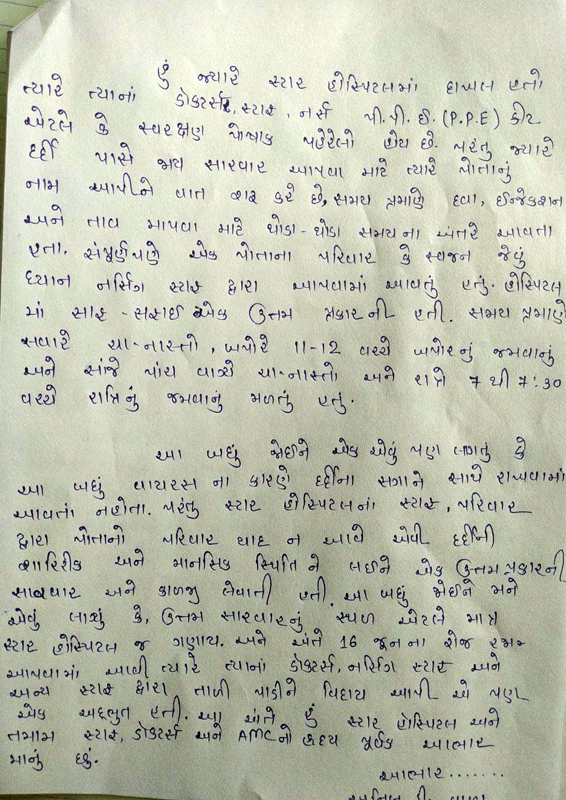 હું જ્યારે સ્ટાર હોસ્પિટલમાં દાખલ હતો
ત્યારે ત્યાનાં ડોકટર્સ, સ્ટાફ, નર્સ પી.પી.ઈ.(P.P.E) કીટ
એટલે કે સ્વરક્ષણ પોષાક પહેરેલો હોય છે. પરંતુ જ્યારે
દર્દી પાસે જાય સારવાર આપવા માટે ત્યારે પોતાનું
નામ આપીને વાત શરૂ કરે છે, સમય પ્રમાણે દવા, ઈન્જેકશન
અને તાવ માપવા માટે થોડા-થોડા સમયના અંતરે આવતા
હતા. સંપૂર્ણપણે એક પોતાના પરિવાર કે સ્વજન જેવું
ધ્યાન નર્સિગ સ્ટાફ દ્વારા આપવામાં આવતું હતું. હોસ્પિટલ
માં સાફ-સફાઈ એક ઉત્તમ પ્રકારની હતી. સમય પ્રમાણે
સવારે ચા-નાસ્તો, બપોરે 11-12 વચ્ચે બપોરનું જમવાનું
અને સાંજે પાંચ વાગ્યે ચા-નાસ્તો અને રાત્રે 7 થી 7:30
વચ્ચે રાત્રિનું જમવાનું મળતું હતું.
આ બધું જોઈને એક એવું પણ લાગતું કે
આ બધું વાયરસ ના કારણે દર્દીના સગાને સાથે રાખવામાં
આવતાં નહોતા. પરંતુ સ્ટાર હોસ્પિટલનાં સ્ટાફ, પરિવાર
દ્વારા પોતાનો પરિવાર યાદ ન આવે એવી દર્દીની
શારિરીક અને માનસિક સ્થિતિ ને લઈને એક ઉત્તમ પ્રકારની
સારવાર અને કાળજી લેવાતી હતી. આ બધું જોઈને મને
એવું લાગ્યું કે, ઉત્તમ સારવારનું સ્થળ એટલે માત્ર
સ્ટાર હોસ્પિટલ જ ગણાય. અને અંતે 16 જૂનના રોજ રજા
આપવામાં આવી ત્યારે ત્યાનાં ડોકટર્સ, નર્સિગ સ્ટાફ અને
અન્ય સ્ટાફ દ્વારા તાળી પાડીને વિદાય આપી એ પણ
એક અદભુત હતી. આ અંતે હું સ્ટાર હોસ્પિટલ અને
તમામ સ્ટાફ, ડોકટર્સ અને AMCનો હૃદય પૂર્વક આભાર
માનું છું.
આભાર.......